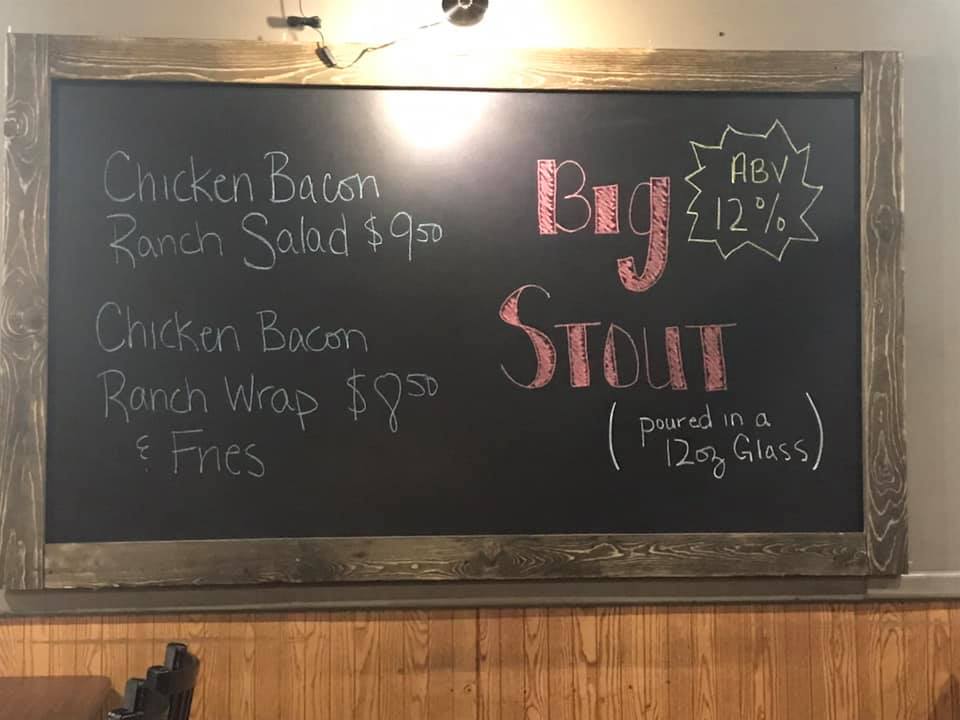 Chicken Bacon
Ranch Salad $9.50
Chicken Bacon
Ranch Wrap $8.50
& Fries
Big
Stout
ABV
12%
(poured in a
12oz Glass)